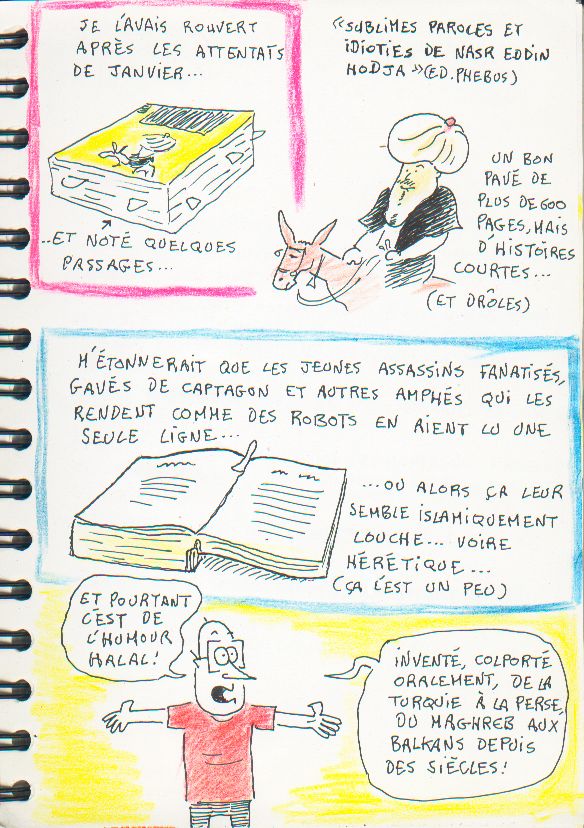 JE L'AVAIS ROUVERT
APRÈS LES ATTENTATS
DE JANVIER...
..ET NOTÉ QUELQUES
PASSAGES...
«SUBLIMES PAROLES ET
IDIOTIES DE NASR EDDIN
HODJA» (ED. PHEBUS)
UN BON
PAVÉ DE
PLUS DE 600
PAGES, MAIS
D'HISTOIRES
COURTES...
(ET DRÔLES)
M'ÉTONNERAIT QUE LES JEUNES ASSASSINS FANATISÉS,
GAVÉS DE CAPTAGON ET AUTRES AMPHÉS QUI LES
RENDENT COMME DES ROBOTS EN AIENT LU UNE
SEULE LIGNE...
...OU ALORS ÇA LEUR
SEMBLE ISLAMIQUEMENT
LOUCHE... VOIRE
HÉRÉTIQUE...
(ÇA L'EST UN PEU)
ET POURTANT
C'EST DE
L'HUMOUR
HALAL!
INVENTÉ, COLPORTÉ
ORALEMENT, DE LA
TURQUIE À LA PERSE,
DU MAGHREB AUX
BALKANS DEPUIS
DES SIÈCLES!